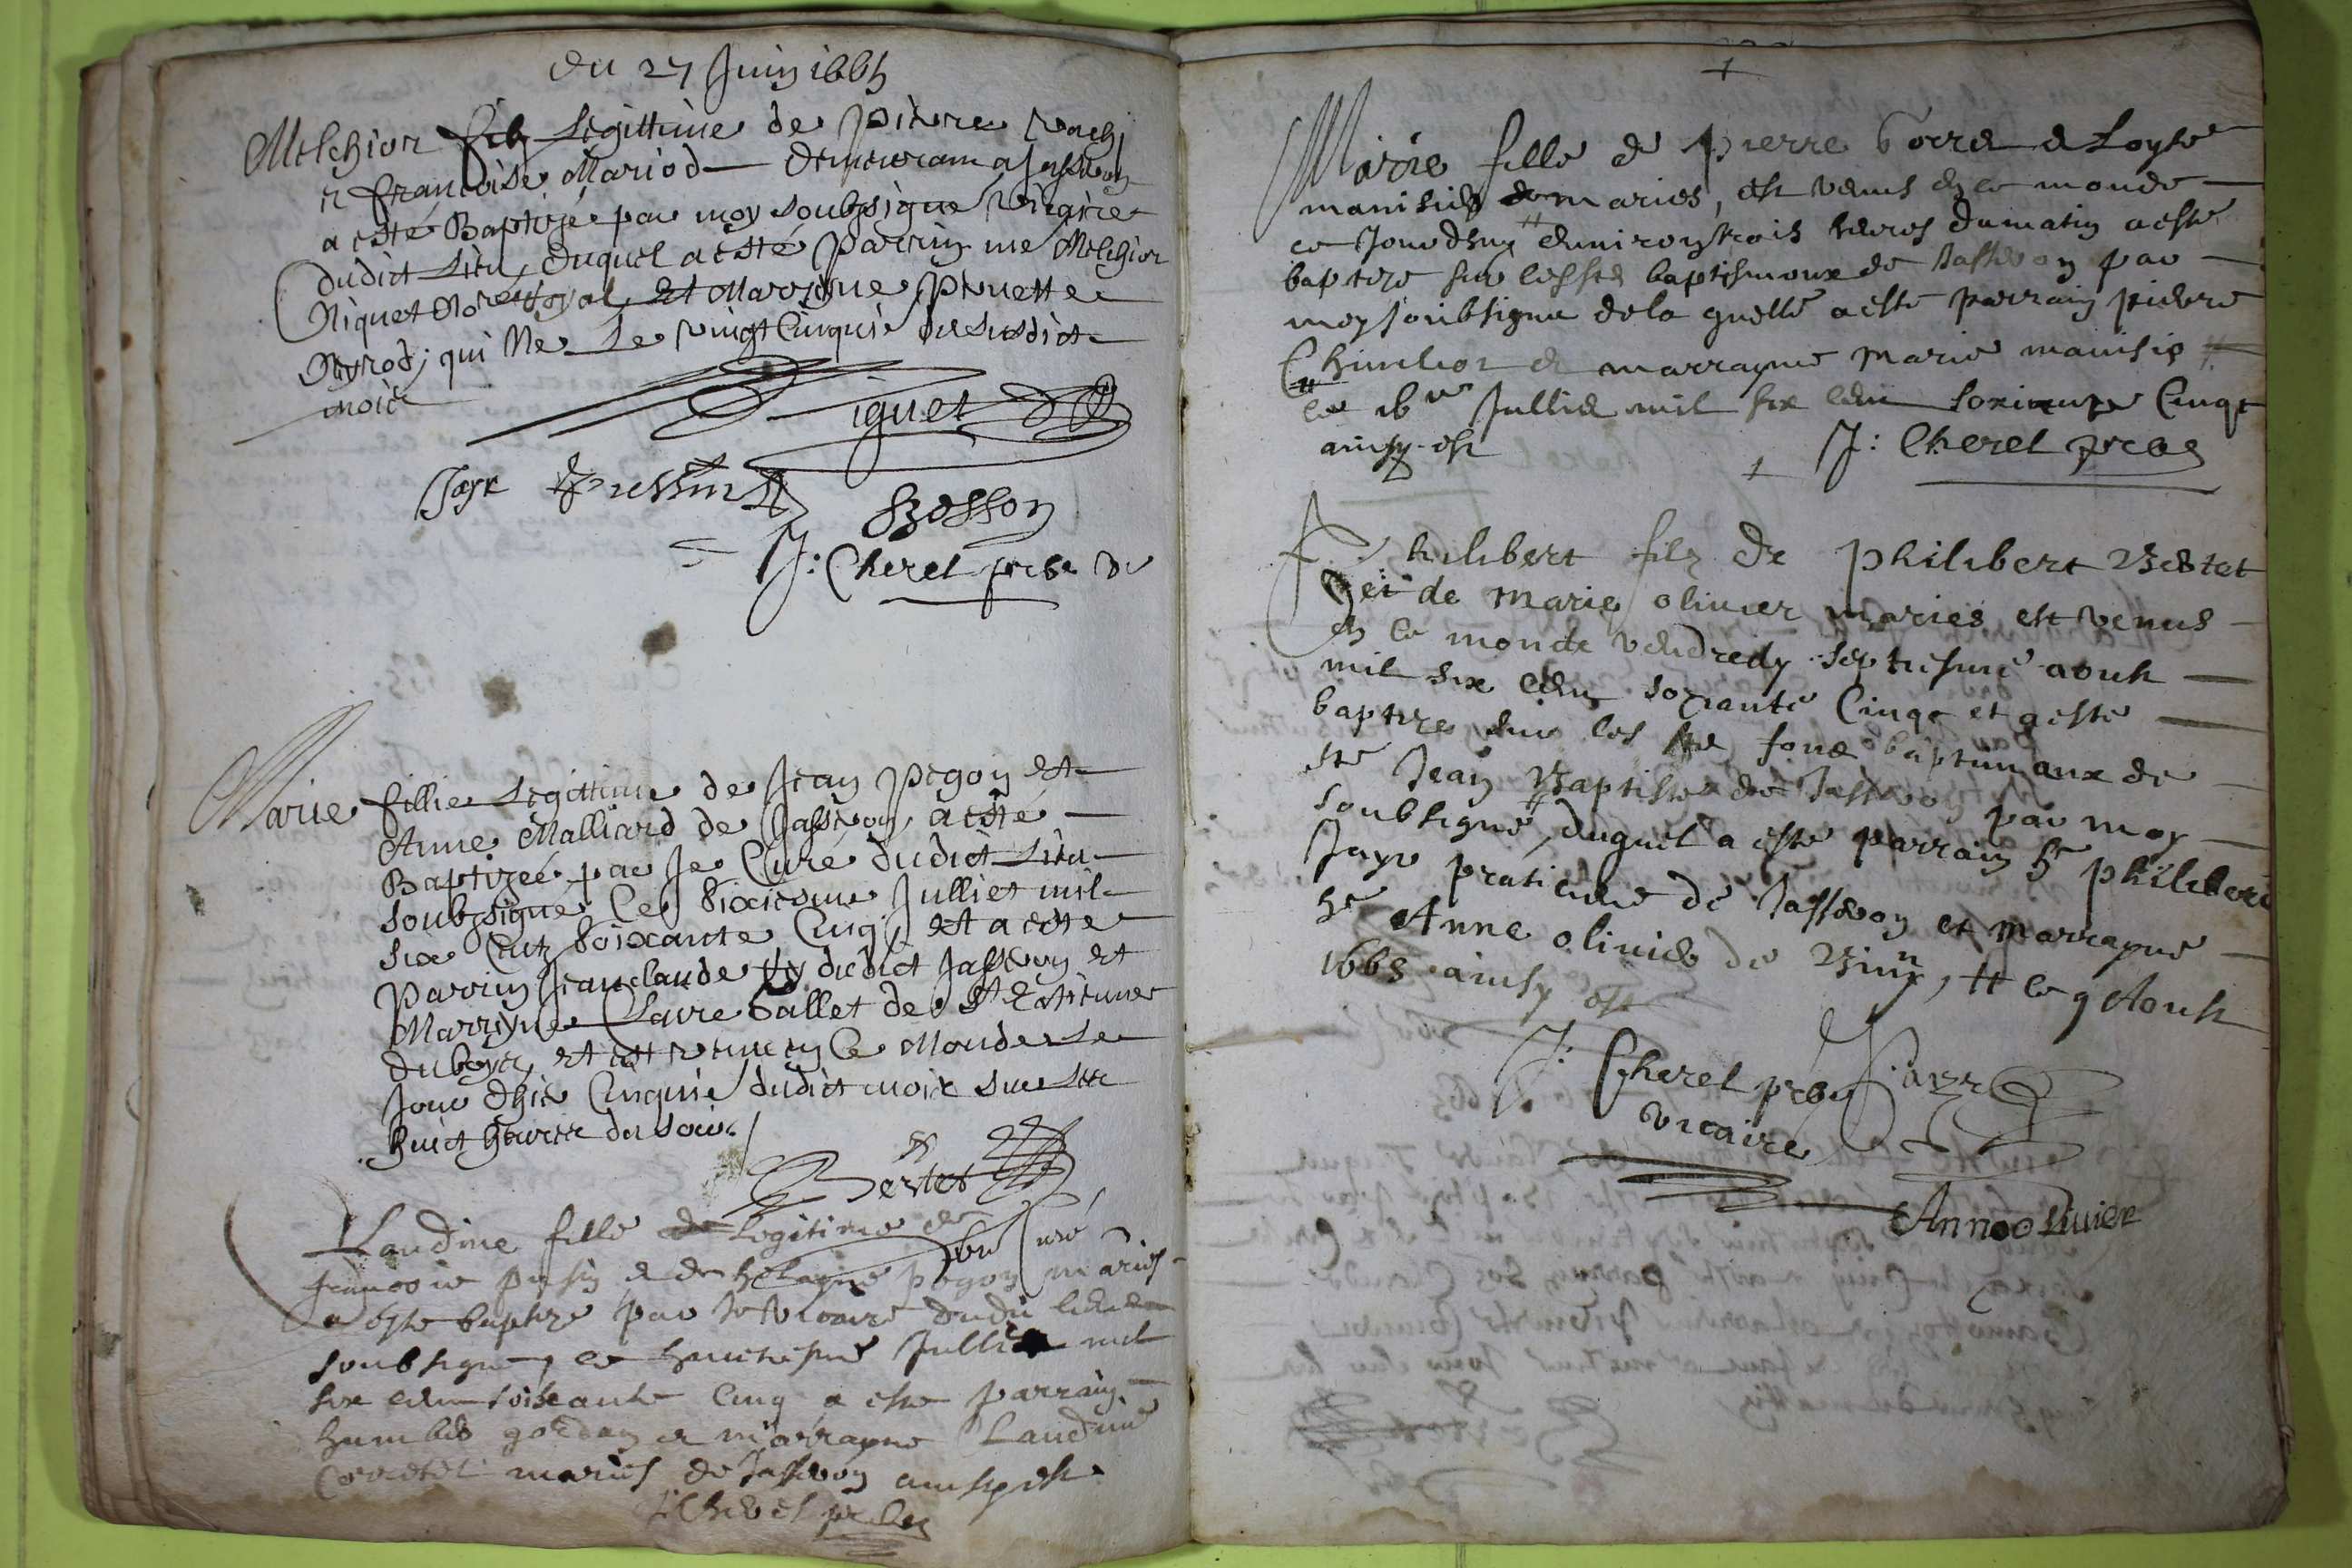 du 27 Juin 1665
Melchior filz Legittime de Pierre Vach
et francoise Mariod demeuram a Jasseron
a esté Baptizé par moy soubsigné Vicaire
dudict Lieu, duquel a esté Parrin me Melchior
Niquet No.re Royal, et Marrine Pernette
qui Ne Le vingt Cinquie du susdict
mois
Niquet
Jayr
Besson
J: Cherel prbe
Marie fillie Legittime de Jean Pegon et
Anne Malliard de Jasseron, a esté
Baptizée par Je Curé dudict Lieu
soubsigné Ce sixiesme Julliet mil
six Centz soixante Cinq, et a esté
Parrin Jeanclaude dudict Jasseron et
Marrine Claire Gallet de St Estienne
du boys, et est venue en Ce Monde Le
Jour d'hier Cinquie dudict mois sur les
huict heures du soir
Bertet
prbe Curé
Laudine fille de Legitime de
francois et de pegon mariés
a este baptize par le vicaire dudit lieu
soubsigne, le huictiesme Jullie mil
six cent soiseante Cinq a este parrain
humber gordan et marrayne Laudine
mariés de Jasseron ainsy est
J Cherel prbe
+
Marie fille de pierre et Loyse
manisier de maries, est venus en ce monde
ce Jourdhuy # environ trois heures du matin a este
baptize sur les ftz baptismaux de Jasseron par
moy soubsigne de la quelle a este parrain pierre
et marrayne marie manisie #
# le 16me Jullie mil six cent soixante Cinqt
ainsy est
+ J: Cherel prbe
Philibert filz de philibert Bertet
et de marie olivier mariés est venus
en ce monde vendredy septiesme aoust
mil six cent soixante Cinqt et a este
baptize sur les fons baptismaux de
st Jean Baptiste de Jasseron par moy
soubsigné, # duquel a este parrain Sr philibert
Jayr praticien de Jasseron et marrayne
hte Anne olivier de , # le 9 Aoust
1665 ainsy est
J: Cherel prbe
vicaire
Jayr
Anne olivier